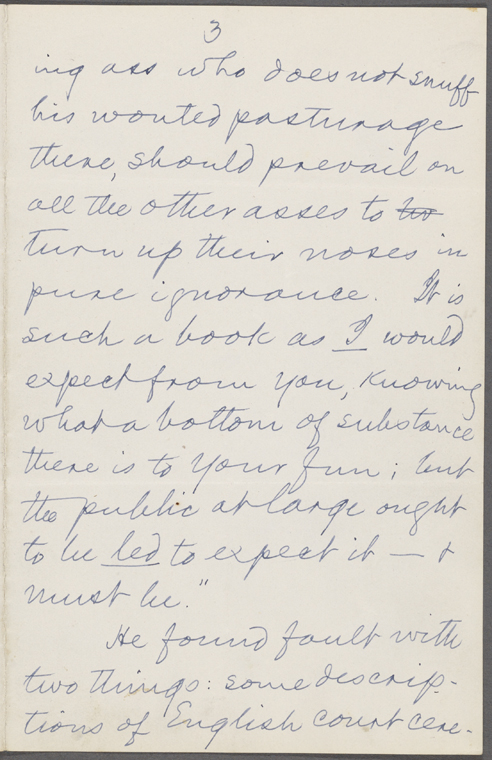 3
ing ass who does not snuff
his wonted pasturage
there, should prevail on
all the other asses to
turn up their noses in
pure ignorance. It is
such a book as I would
expect from you, knowing
what a bottom of substance
there is to your fun; but
the public at large ought
to be led to expect it — &
must be."
He found fault with
two things: some descrip-
tions of English court cere-